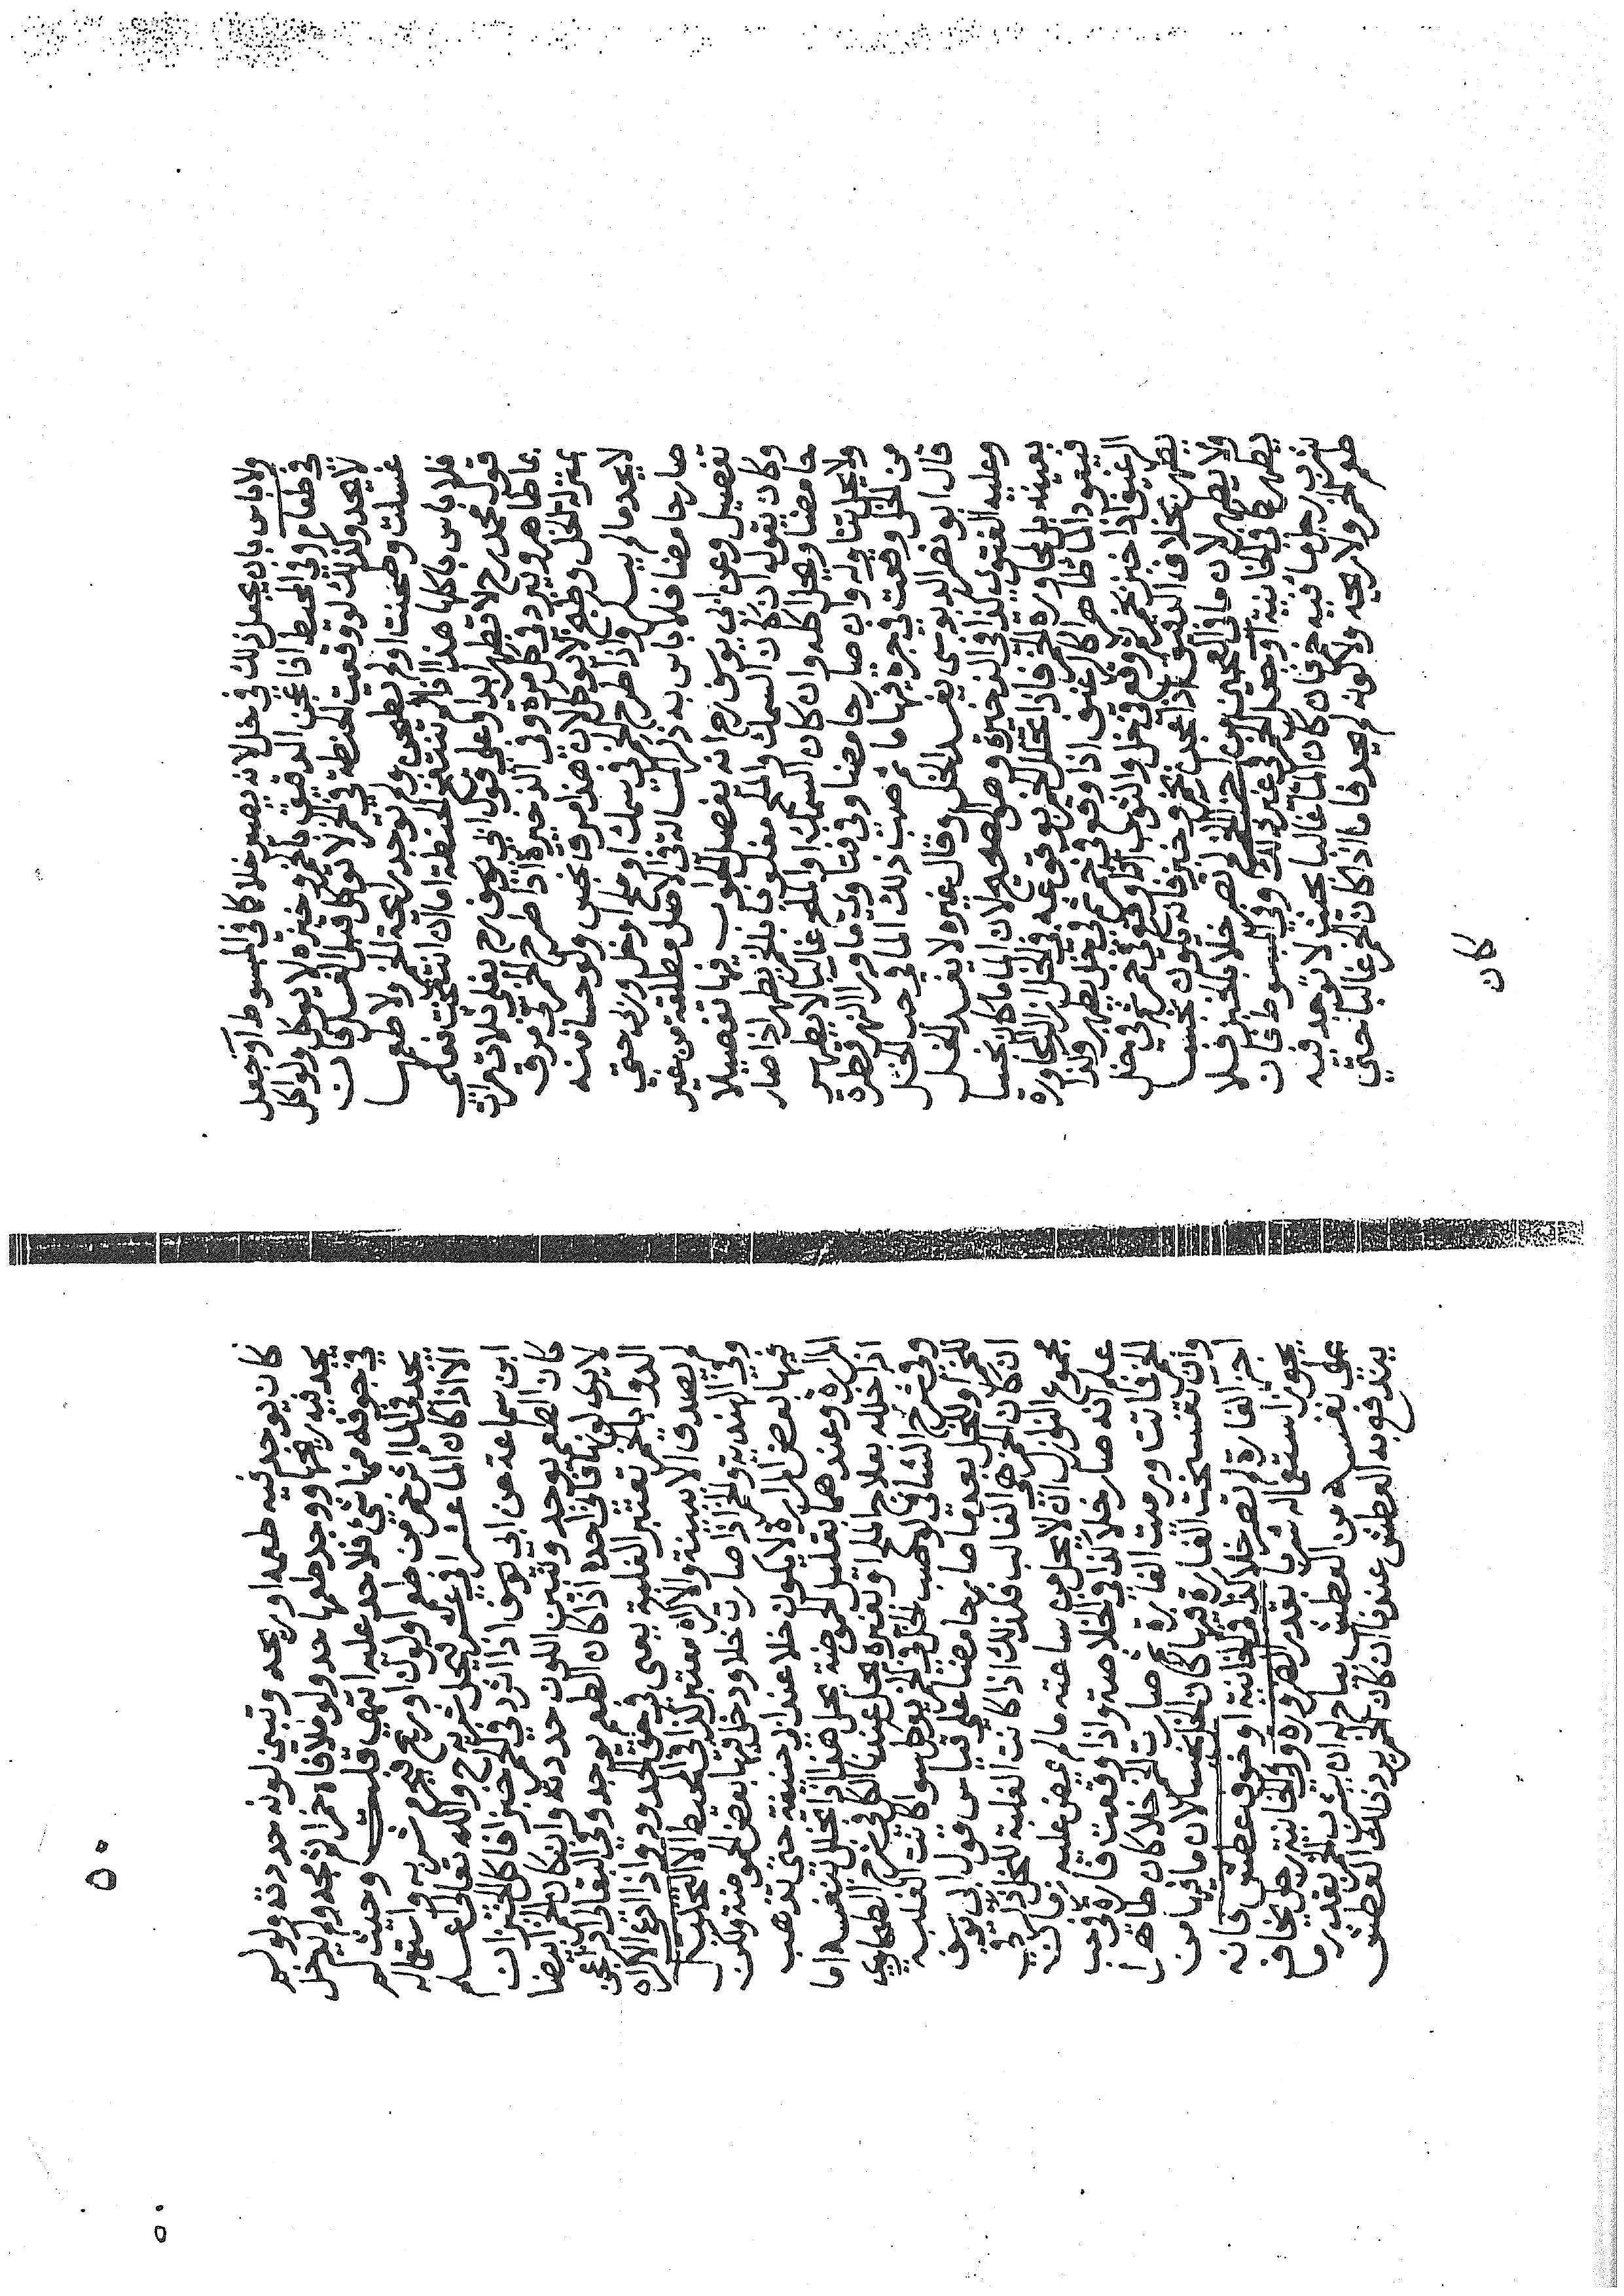 ولا باس بان يجعل ذلك في خل لانه يصير خلا كما في المبسوط او جعل
في طعام وفي المحيط اذا عجن الدقيق بالخمر وخبزه لا يوكل ولو اكل
لا يحد ولذلك لو وقعت الحنطة في الخمر لا توكل قبل الغسل فان
غسلت وطحنت او لم تطحن ولم توجد رايحة الخمر ولا طعمها
فلا باس باكلها هذا اذا لم تنتفخ الحنطة اما ان انتفخت فعلى
قول محمد رح لا تطهر ابدا وعلى قول ابي يوسف رح يغلي ثلاث مرات
بما طاهر ويبرد في كل مرة وفي الذخيرة اذا طرح الخمر في مرق
بمنزلة الخل وطبخ لا يوكل لان هذا مرق نجس ولو حسا منه
لا يحد ما لم يسكر واذا طرح الخمر في سمك او ملح او خل وربي حتى
صار حامضا فلا باس به ذكر المسالة في الاصل مطلقة من غير
تفصيل وعن ابي يوسف رح انه يفصل الجواب فيها تفصيلا
وكان يقول ان كان السمك والملح مغلوبا بالخمر يطهر اذا صار
حامضا ويحل اكله وان كان السمك او الملح غالبا لا يطهر
ولا يحل تناوله وان صار حامضا وفي فتاوى ما ورا النهر قطرة
من الخل وقعت في جرة فيها ما ثم صب ذلك الما في حب الخل
قال ابو نصر الدبوسي يفسد الخل وقال غيره لا يفسد الخل
وعليه الفتوى كذا في الذخيرة وهو الصحيح لان الما ما كان نجسا
بعينه بل بمجاورة الخمر فاذا تخلل الخمر بوقوعه في الخل زالت المجاورة
فيعود الما طاهرا كالرغيف اذا وقع في خمر ثم في خل يطهر ولذا
الرغيف اذا خبز بخمر ثم وقع في خل والثوب اذا وقع في خمر ثم في خل
يطهر بخلاف الدقيق اذا عجن بخمر وخبز فانه يكون نجسا
ولا يطهر لان ما في العجين من اجزاء الخمر لم يصر خلا بالخبز فلا
يطهر كما في الخانية او جعل الخمر في غير ذلك وفي المبسوط فان
شرب رجل ما فيه خمر فان كان الما غالبا بحيث لا توجد فيه
طعم خمر ولا ريحه ولا لونه لم يحد فاما اذا كان الخمر غالبا حتى
كان
٥٠
كان يوجد فيه طعمه او ريحه وتبين لونه حددته ولو لم
يجد فيه ريحها ووجد طعمها حد ولو ملا فاه خمرا ثم مجه ولم يدخل
في جوفه منها شي فلا حد عليه انتهى قلت وحيث لم
يجد في الما اثر خمر من طعم او لون او ريح فيحرم شربه واستعماله
الا اذا كان الما عشرا في عشر فيحل شربه ح والله تعالى اعلم
ابن سماعة عن ابي يوسف اذا ثرد في الخمر خبزا فاكل الخبز ان
كان الطعم يوجد وتبين اللون حددته وان كان الخمر ابيضا
لا يرى لونها فاني احده اذا كان الطعم يوجد وفي البقالي اذا عجن
الدوا بالخمر تعتبر الغلبة يعني في حق الحد واذا ادعى الاكراه
لم يصدق الا ببينة والاكراه معتبر كذا في المحيط الا التخليل
وفي الهندية والخمر اذا صارت خلا ودخل فيها بعض الحموضة ولكن
فيها بعض المرارة لا يكون خلا عند ابي حنيفة حتى تذهب
المرارة وعندهما بقليل الحموضة يحل هذا اذا تخلل بنفسه اما
اذا خلله بعلاج بالملح او بغيره يحل عندنا الكل في شرح الطحاوي
وفي شرح الشافي لو صب الخل في الخمر يوكل سوا كانت الغلبة
للخمر او للخل بعد ما صار حامضا على قياس قول ابي يوسف
ان كان الخمر هو الغالب فكذلك اذا كانت الغلبة للخل
مجموع النوازل انه لا يحل من ساعته ما لم يمض عليه زمان
علم انه صار خلا كذا في الخلاصة واذا وقعت فارة في حب
الخمر فماتت ورميت الفارة ثم صارت الخمر خلا كان طاهرا
وان تفسخت الفارة فيها كان الخل نجسا لان ما فيها من
اجزا الفارة لم تصر خلا كذا في الخانية او خوف عطش فانه
يجوز استعماله شربا بقدر الضرورة وفي الخانية رجل يخاف
على نفسه من العطش يباح له ان يشرب الخمر بقدر ما
يندفع به العطش عندنا ان كان الخمر يرد ذلك العطش